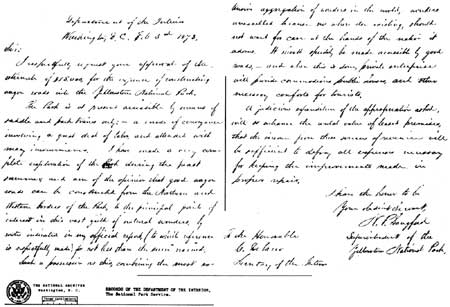 Department of the Interior
Washington, D.C. Feb 3d 1873.
Sir:
I respectfully request your approval of the
estimate of $15,000 for the expense of constructing
wagon roads into the Yellowstone National Park.
The Park is at present accessible by means of
saddle and pack trains only; – a mode of conveyance
involving a great deal of labor and attended with
many inconveniences. I have made a very com-
plete exploration of the Park during the past
summer and am of the opinion that good wagon
roads can be constructed from the Northern and
Western borders of the Park, to the principal points of
interest in this vast gift of natural wonders, by
routes indicated in my official report, (to which reference
is respectfully made) for not less than the sum named.
Such a possession as this, combining the most no-
aggregation of wonders in the world, wonders
unexcelled because no where else existing, should
not want for care at the hands of the nation it
adorns. It should speedily be made accessible by good
roads, – and when this is done, private enterprise
will provide commodious public houses, and other
necessary comforts for tourists.
A judicious expenditure of the appropriation asked,
will so enhance the actual value of leased premises,
that the income from these sources of revenue will
be sufficient to defray all expenses necessary
for keeping the improvements made in
proper repair.
I have the honor to be
Your obedient servt,
N. P. Langford
Superintendent of the
Yellowstone National Park.
To the Honorable
C. Delano
Secretary of the Interior
THE NATIONAL ARCHIVES
Washington, D. C.
RECORDS OF THE DEPARTMENT OF THE INTERIOR,
The National Park Service.